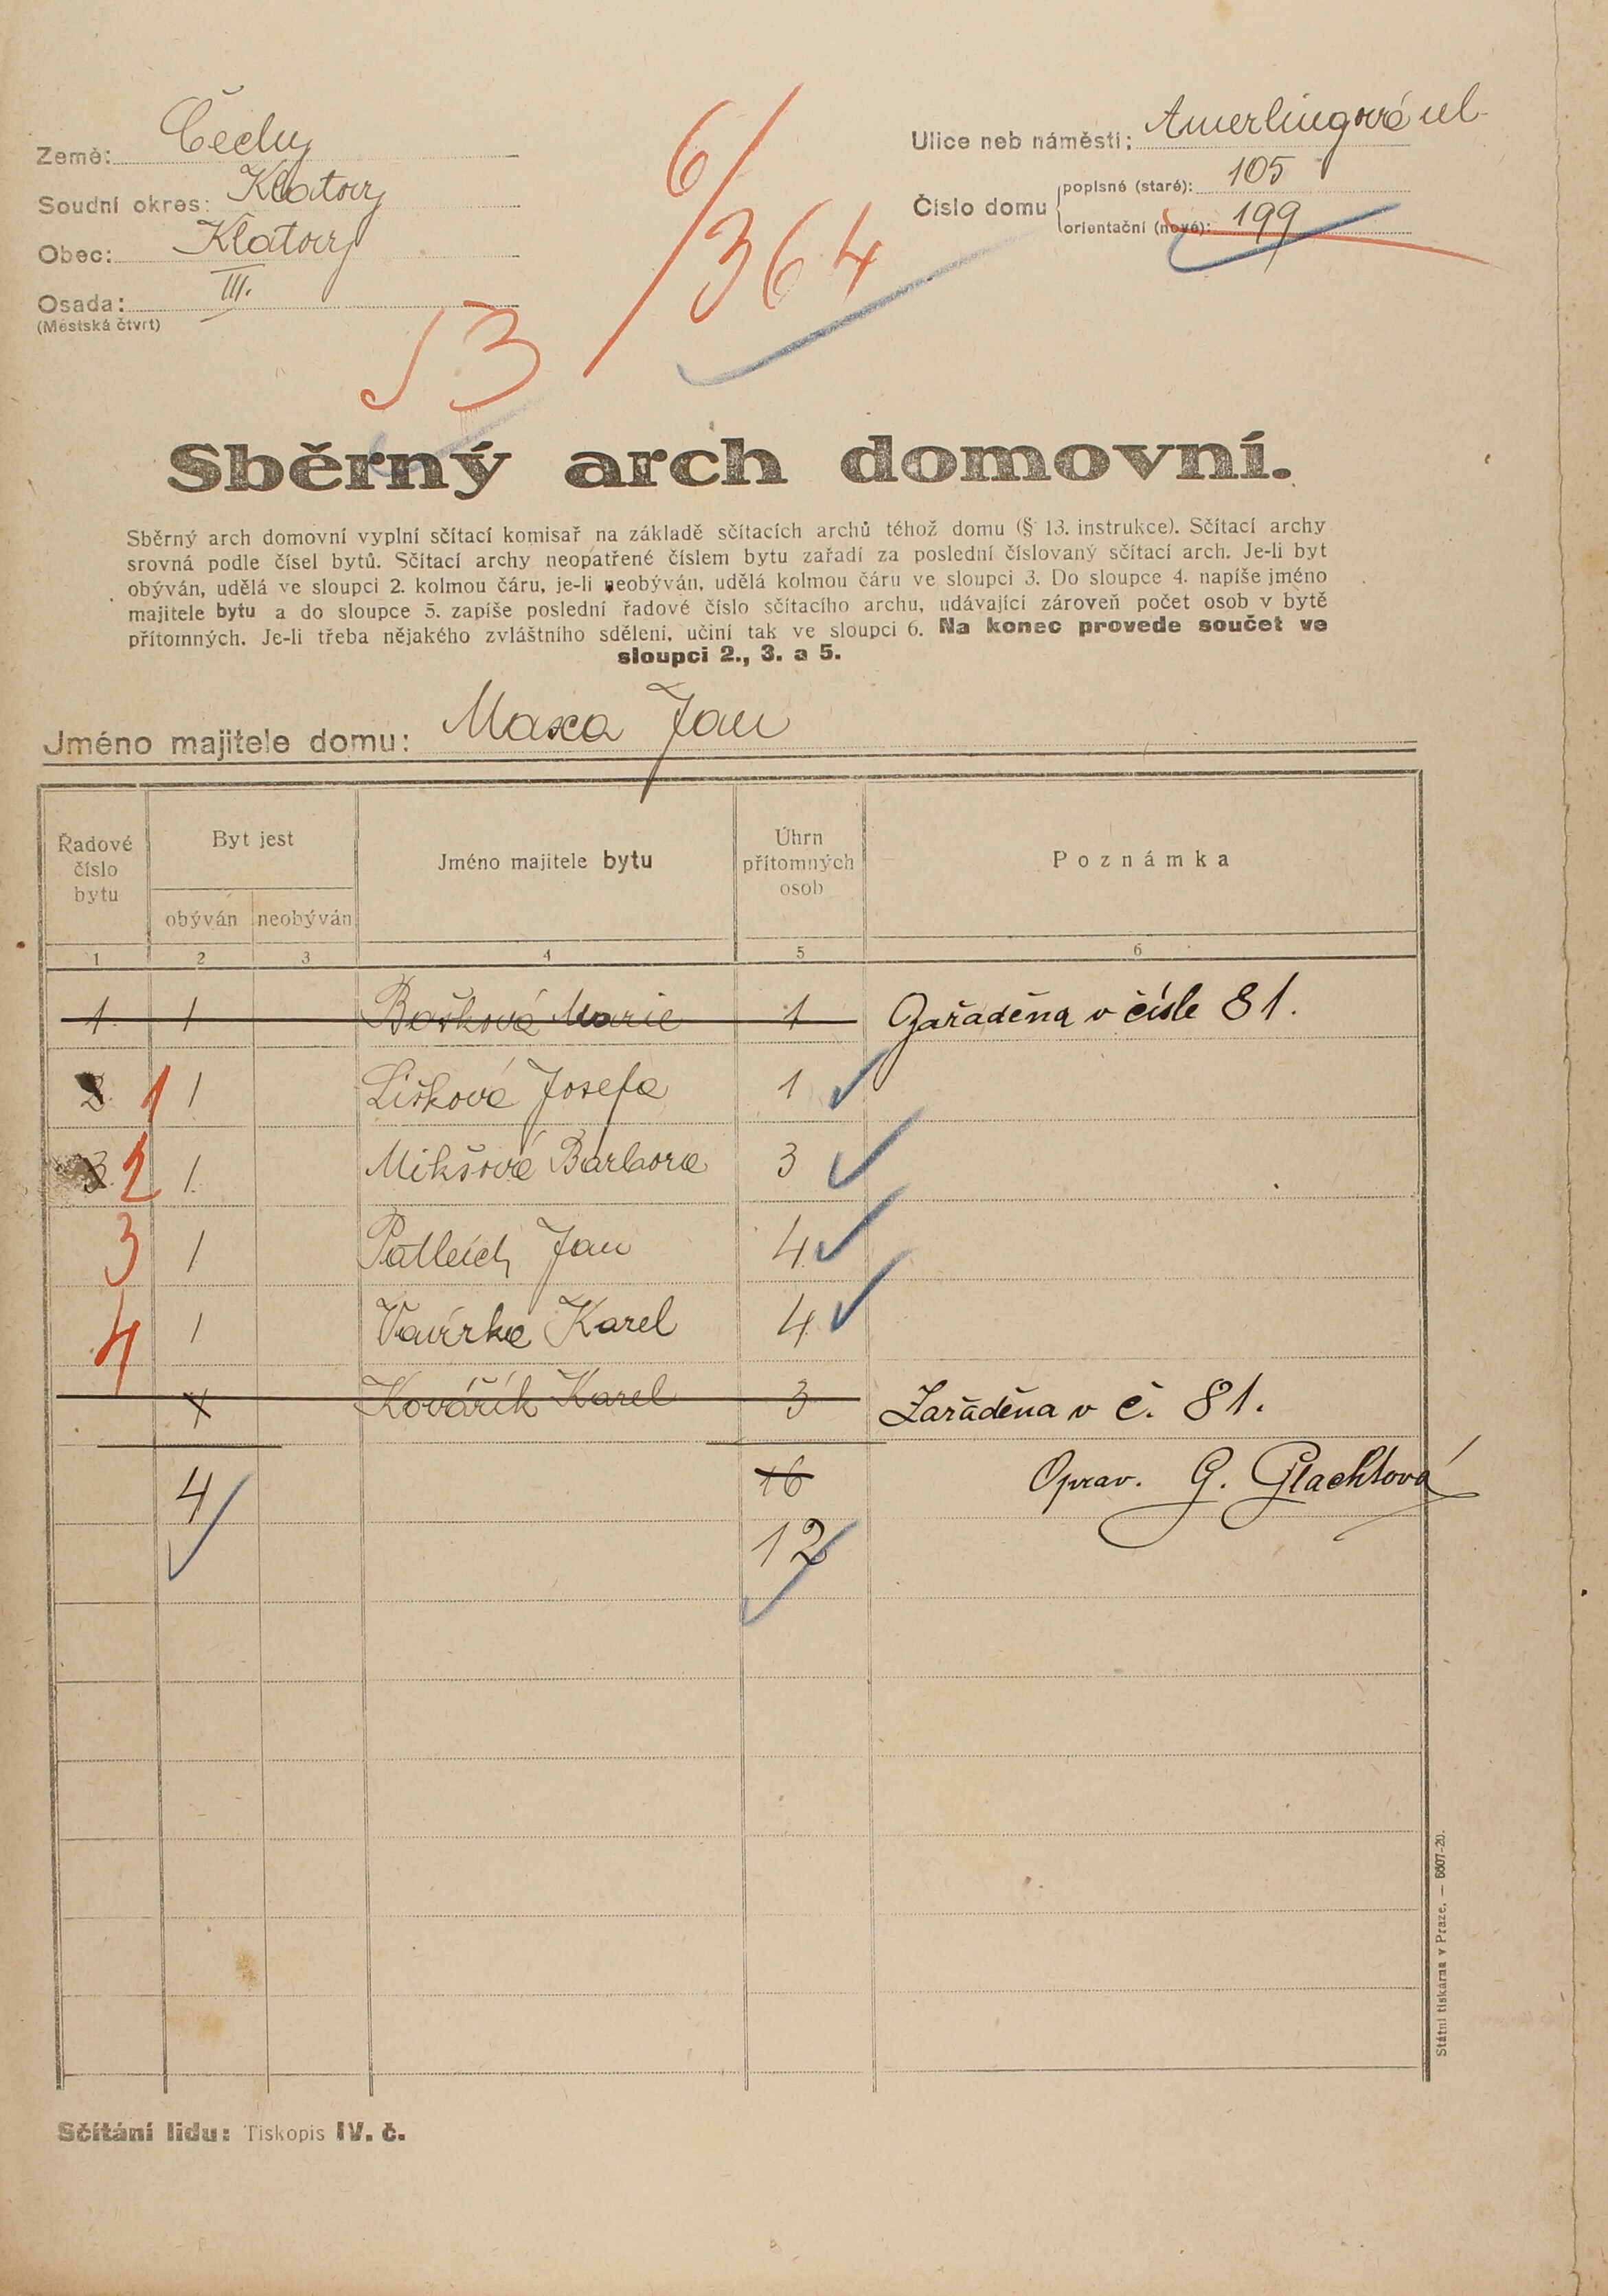 Země: Čechy
Soudní okres: Klatovy
Obec: Klatovy
Osada: III.
(Městská čtvrt)
6/364
53
Ulice neb náměstí: Amerlingová ul.
Číslo domu
popisné (staré): 105
orientační (nové): 199
Sběrný arch domovní.
Sběrný arch domovní vyplní sčítací komisař na základě sčítacích archů téhož domu (§ 13. instrukce). Sčítací archy
srovná podle čísel bytů. Sčítací archy neopatřené číslem bytu zařadí za poslední číslovaný sčítací arch. Je-li byt
obýván, udělá ve sloupci 2. kolmou čáru, je-li neobýván, udělá kolmou čáru ve sloupci 3. Do sloupce 4. napíše jméno
majitele bytu a do sloupce 5. zapíše poslední řadové číslo sčítacího archu, udávající zároveň počet osob v bytě
přítomných. Je-li třeba nějakého zvláštního sdělení, učiní tak ve sloupci 6. Na konec provede součet ve
sloupci 2., 3. a 5.
Jméno majitele domu: Maxa Jan
Řadové číslo bytu
Byt jest
obýván
neobýván
Jméno majitele bytu
Úhrn přítomných osob
Poznámka
1 2 3 4 5 6
1. 1 Bošková Marie 1 Zařaděna v čísle 81.
2. 1 1 Lišková Josefa 1
3. 2 1 Mikšová Barbora 3
3 1 Patleich Jan 4
4 1 Vavírka Karel 4
1 Kovářík Karel 3 Zařaděna v č. 81.
4 16 Oprav. G. Glachtová
12
Státní tiskárna v Praze. — 6607-20.
Sčítání lidu: Tiskopis IV. č.